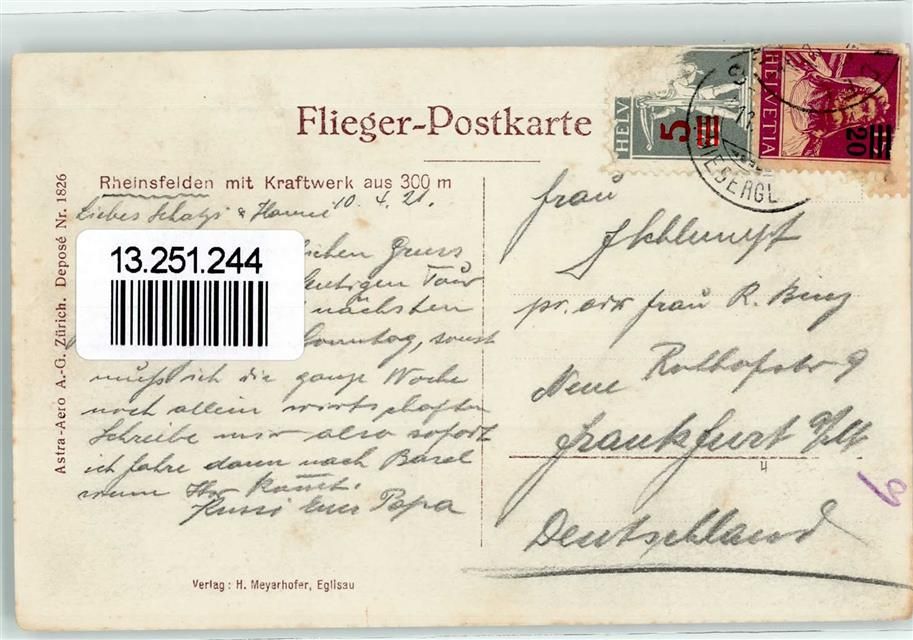 Flieger-Postkarte
HELV
5
HELVETIA
20
Rheinsfelden mit Kraftwerk aus 300 m
10. 4. 21.
Liebes Schatzi & Hanni
13.251.244
lichen Gruss
heutigen Tour
nächsten
Sonntag, sonst
muß ich die ganze Woche
noch allein wirtschaften
Schreibe mir also sofort
ich fahre dann nach Basel
wenn Ihr kommt.
Kussi Euer Papa
Frau
J Schlumpf
pr. adr Frau R. Benz
Neue Rothofstr 9
Frankfurt a/M
Deutschland
6
4
Astra-Aero A.-G. Zürich. Deposé Nr. 1826
Verlag: H. Meyerhofer, Eglisau